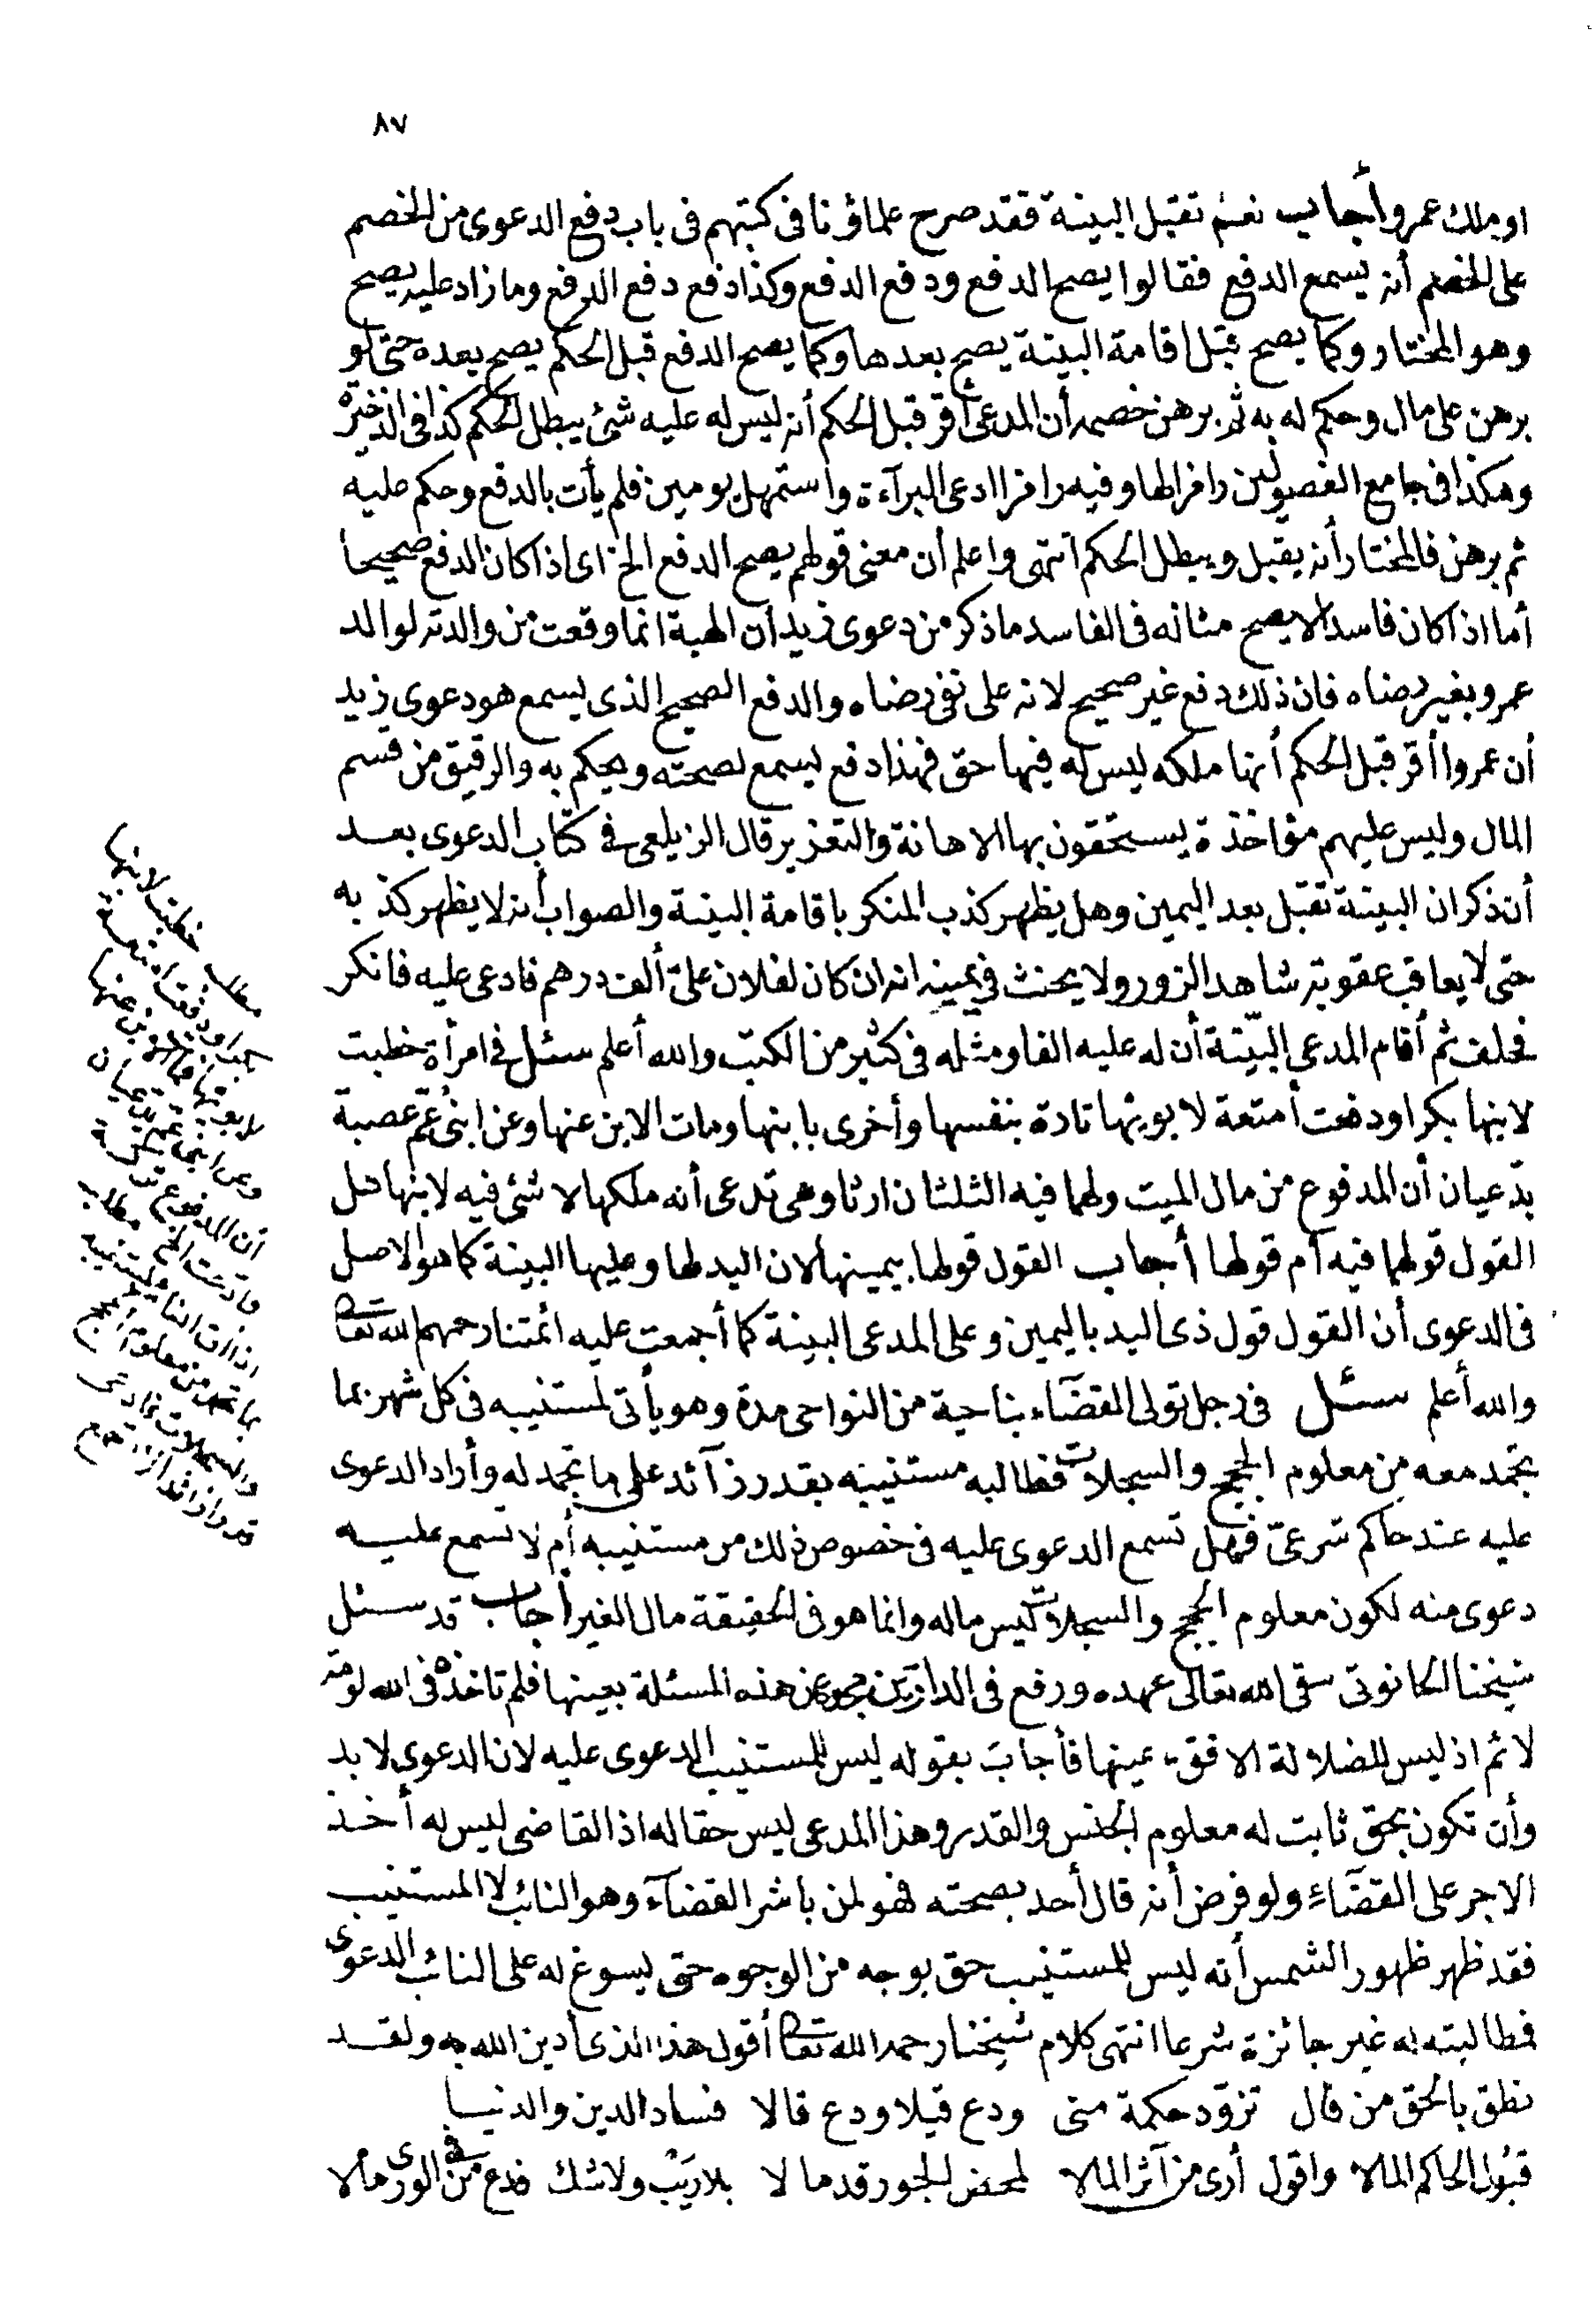 ٨٧
او ملك عمرو أجاب نعم تقبل البينة فقد صرح علماؤنا فى كتبهم فى باب دفع الدعوى من الخصم
على الخصم أنه يسمع الدفع فقالوا يصح الدفع ودفع الدفع وكذا دفع دفع الدفع وما زاد عليه يصح
وهو المختار وكما يصح قبل اقامة البينة يصح بعدها وكما يصح الدفع قبل الحكم يصح بعده حتى لو
برهن على مال وحكم له به ثم برهن خصمه أن المدعى أقر قبل الحكم أنه ليس له عليه شئ يبطل الحكم كذا فى الذخيرة
وهكذا فى جامع الفصولين رامزا لها وفيه رامزا ادعى البرآءة واستمهل يومين فلم يأت بالدفع وحكم عليه
ثم برهن فالمختار أنه يقبل ويبطل الحكم انتهى واعلم أن معنى قولهم يصح الدفع الخ اى اذا كان الدفع صحيحا
أما اذا كان فاسدا لا يصح مثاله فى الفاسد ما ذكر من دعوى زيد أن الهبة انما وقعت من والدته لوالد
عمرو بغير رضاه فان ذلك دفع غير صحيح لانه على نفى رضاه والدفع الصحيح الذى يسمع هو دعوى زيد
أن عمروا أقر قبل الحكم أنها ملكه ليس له فيها حق فهذا دفع يسمع لصحته ويحكم به والرقيق من قسم
المال وليس عليهم مؤاخذة يستحقون بها الاهانة والتعزير قال الزيلعى فى كتاب الدعوى بعد
أن ذكر ان البينة تقبل بعد اليمين وهل يظهر كذب المنكر باقامة البينة والصواب أنه لا يظهر كذبه
حتى لا يعاقب عقوبة شاهد الزور ولا يحنث فى يمينه انه ان كان لفلان علىّ ألف درهم فادعى عليه فانكر
فحلف ثم أقام المدعى البيّنة أن له عليه الفا ومثله فى كثير من الكتب والله أعلم سئل فى امرأة خطبت
لابنها بكرا ودفعت أمتعة لابويها تارة بنفسها وأخرى بابنها ومات الابن عنها وعن ابنى عمّ عصبة
يدّعيان أن المدفوع من مال الميت ولهما فيه الثلثان ارثا وهى تدعى أنه ملكها لا شئ فيه لابنها هل
القول قولهما فيه أم قولها أجاب القول قولها بيمينها لان اليد لها وعليهما البينة كما هو الاصل
فى الدعوى أن القول قول ذى اليد باليمين وعلى المدعى البينة كما أجمعت عليه ائمتنا رحمهم الله تعالى
والله أعلم سئل فى رجل تولى القضآء بناحية من النواحى مدة وهو يأتى لمستنيبه فى كل شهر بما
تجمد معه من معلوم الحجج والسجلات فطالبه مستنيبه بقدر زآئد على ما تجمد له وأراد الدعوى
عليه عند حاكم شرعىّ فهل تسمع الدعوى عليه فى خصوص ذلك من مستنيبه أم لا تسمع عليه
دعوى منه لكون معلوم الحجج والسجلات ليس ماله وانما هو فى الحقيقة مال الغير أجاب قد سئل
شيخنا الحانوتى سقى الله تعالى عهده ورفع فى الدارين مجده عن هذه المسئلة بعينها فلم تاخذه فى الله لومة
لائم اذ ليس للضلالة الا فقء عينها فأجاب بقوله ليس للمستنيب الدعوى عليه لان الدعوى لا بد
وأن تكون بحق ثابت له معلوم الجنس والقدر وهذا المدعى ليس حقا له اذ القاضى ليس له أخذ
الاجر على القضآء ولو فرض أنه قال أحد بصحته فهو لمن باشر القضآء وهو النائب لا المستنيب
فقد ظهر ظهور الشمس أنه ليس للمستنيب حق بوجه من الوجوه حتى يسوغ له على النائب الدعوى
فمطالبته له غير جائزة شرعا انتهى كلام شيخنا رحمه الله تعالى أقول هذا الذى أدين الله به ولقد
نطق بالحق من قال تزوّد حكمة منى ودع قيلا ودع قالا فساد الدين والدنيا
قبول الحاكم المالا واقول أرى من آثر المالا لمحض الجور قد مالا بلا ريب ولا شك فدع من فى الورى مالا
مطلب خطبت لابنها
بكرا ودفعت أمتعة
وعن ابنى عم يدعيان
أن المدفوع